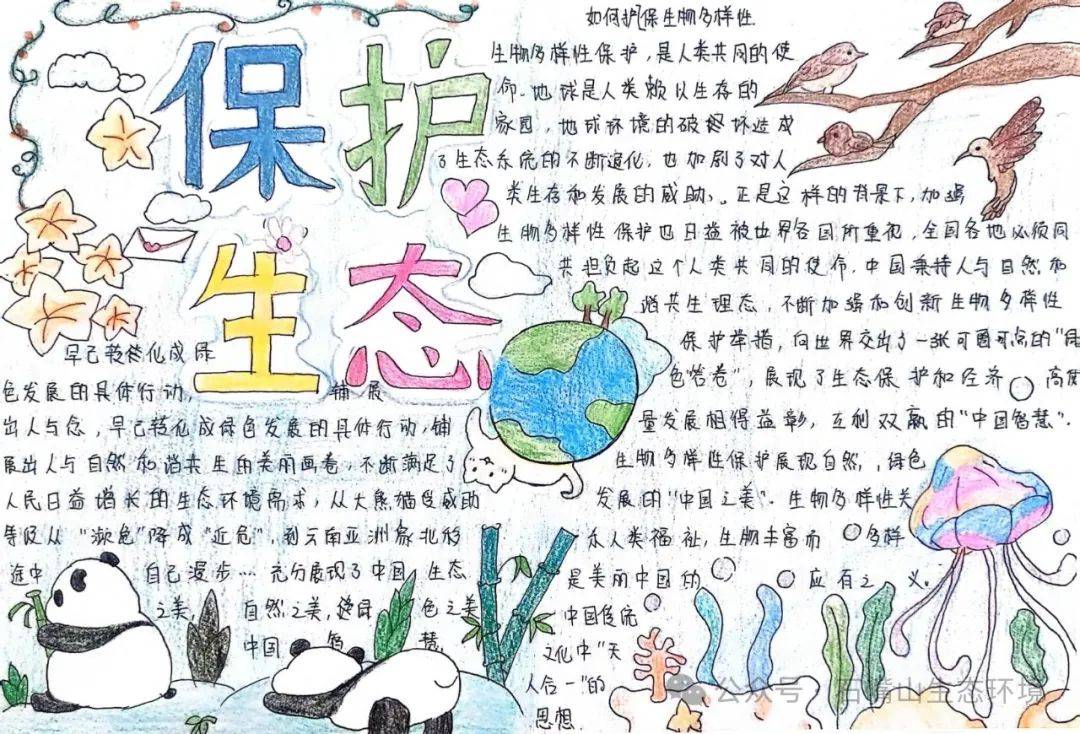 保护
生态
如何护保生物多样性
生物多样性保护,是人类共同的使
命.地球是人类赖以生存的
家园,地球环境的破坏造成
了生态系统的不断退化,也加剧了对人
类生存和发展的威胁,。正是这样的背景下,加强
生物多样性保护也日益被世界各国所重视,全国各地必须同
共担负起这个人类共同的使命.中国秉持人与自然和
谐共生理态,不断加强和创新生物多样性
保护举措,向世界交出了一张可圈可点的"绿
色答卷",展现了生态保护和经济高质
量发展相得益彰,互利双赢的"中国智慧".
生物多样性保护展现自然,,绿色
发展的"中国之美".生物多样性关
乎人类福祉,生物丰富而多样
是美丽中国的应有之义。
中国传统
文化中"天
人合一"的
思想.
早已转化成绿
色发展的具体行动,铺展
出人与念,早已转化成绿色发展的具体行动,铺
展出人与自然和谐共生的美丽画卷,不断满足了
人民日益增长的生态环境需求,从大熊猫受威胁
等级从"濒危"降成"近危",到云南亚洲象北移
途中自己漫步…充分展现了中国生态
之美,自然之美,绿色之美
中国智慧.
公众号·石嘴山生态环境